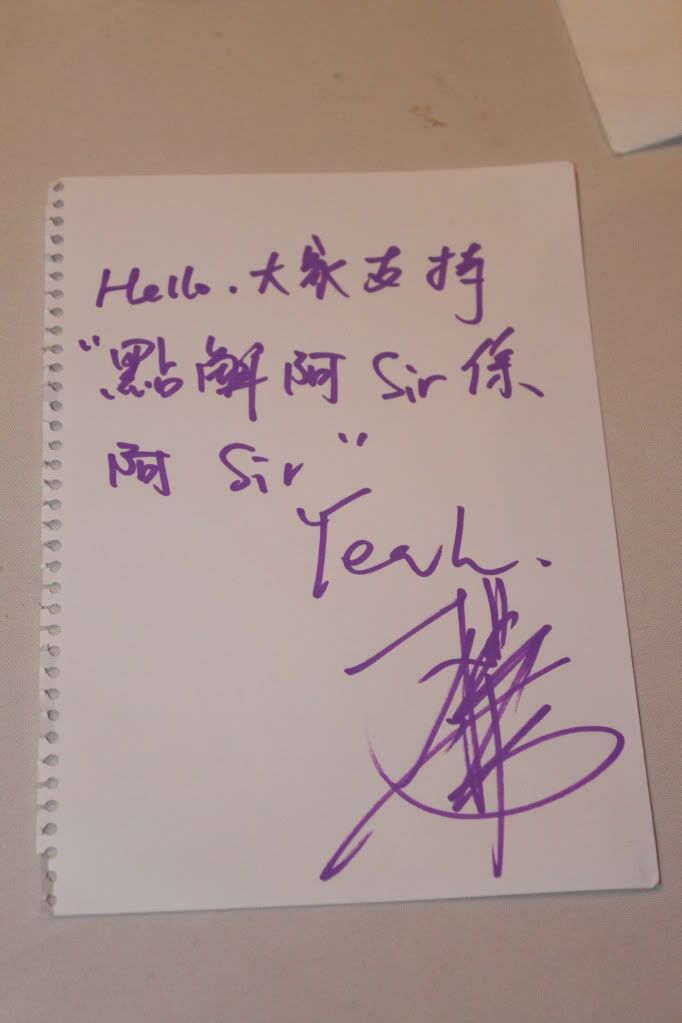 Hello. 大家支持
"點解阿 Sir 係
阿 Sir"
Yeah.